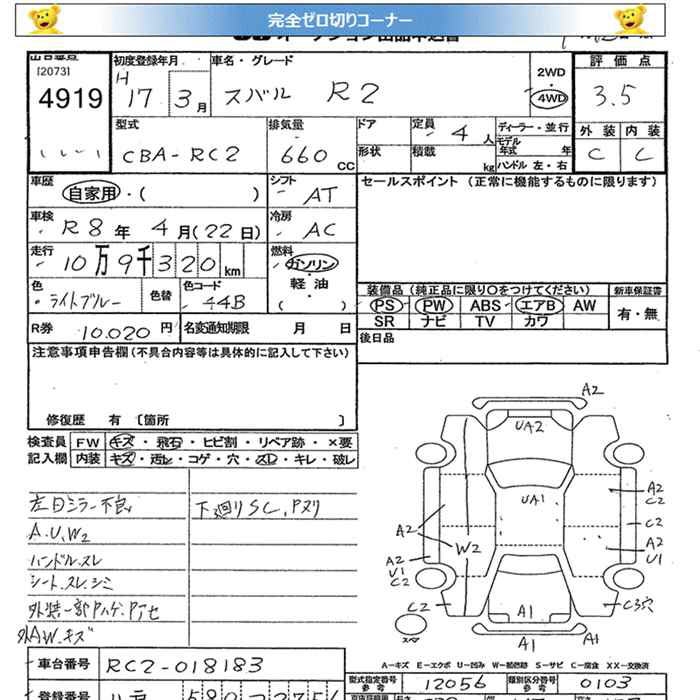 完全ゼロ切りコーナー
[2073]
4919
初度登録年月
H
17 3月
車名・グレード
スバル R2
2WD
・
4WD
評価点
3.5
外装 内装
C C
型式
CBA-RC2
排気量
660 CC
ドア
形状
定員 4 人
積載 kg
ディーラー・並行
モデル年式 年
ハンドル 左・右
車歴
自家用・( )
シフト
AT
車検
R8年 4月(22日)
冷房
AC
走行
10万9千320 km
燃料
ガソリン
軽・油
( )
色
ライトブルー
色替
色コード
44B
R券 10.020円
名変通知期限 月 日
セールスポイント (正常に機能するものに限ります)
装備品 (純正品に限り○をつけてください)
PS PW ABS エアB AW
SR ナビ TV カワ
新車保証書
有・無
後日品
注意事項申告欄(不具合内容等は具体的に記入して下さい)
修復歴 有 〔箇所 〕
検査員 FW キズ・飛石・ヒビ割・リペア跡・×要
記入欄 内装 キズ・汚レ・コゲ・穴・スレ・キレ・破レ
左目ミラー不良
下廻りSC,Pヌリ
A.U.W2
ハンドル.スレ
シート.スレ.シミ
外装一部Pハゲ.Pアセ
外AW.キズ
A2
UA2
UA1
A2
C2
C2
A2
U1
A2
W2
A2
U1
C2
C2
A1
C3穴
A1
A1
スペア
A−キズ E−エクボ U−凹み W−補修跡 S−サビ C−腐食 XX−交換済
車台番号 RC2-018183
型式指定番号
参考
12056
類別区分番号
参考
0103
登録番号